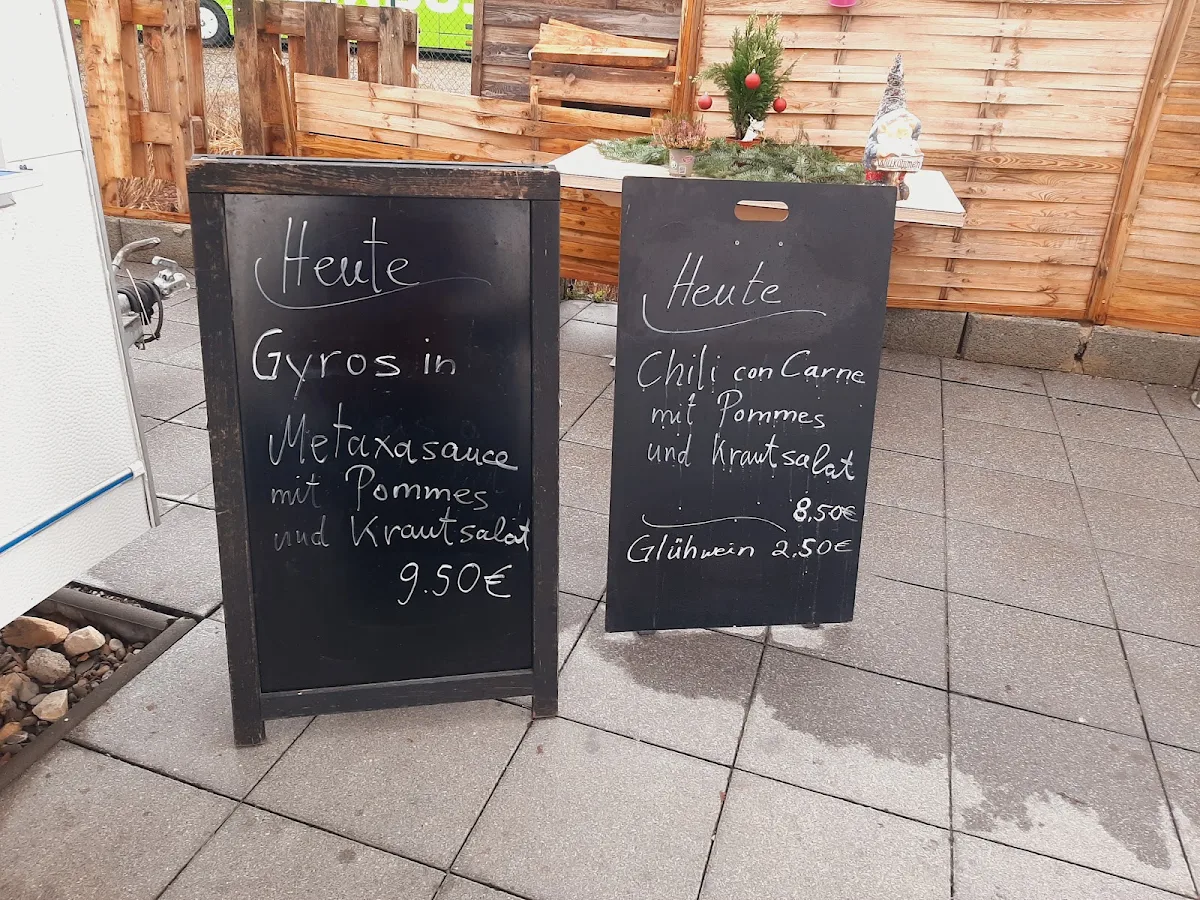 Heute
Gyros in
Metaxasauce
mit Pommes
und Krautsalat
9.50€
Heute
Chili con Carne
mit Pommes
und Krautsalat
8,50€
Glühwein 2,50€
Willkommen